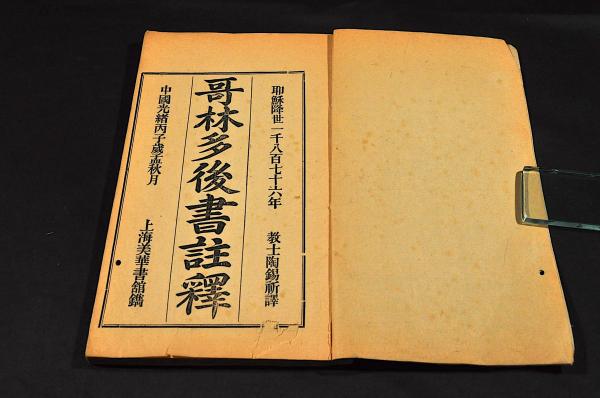 耶穌降世一千八百七十六年 教士陶錫祈譯
哥林多後書註釋
中國光緒丙子歲孟秋月 上海美華書舘鐫